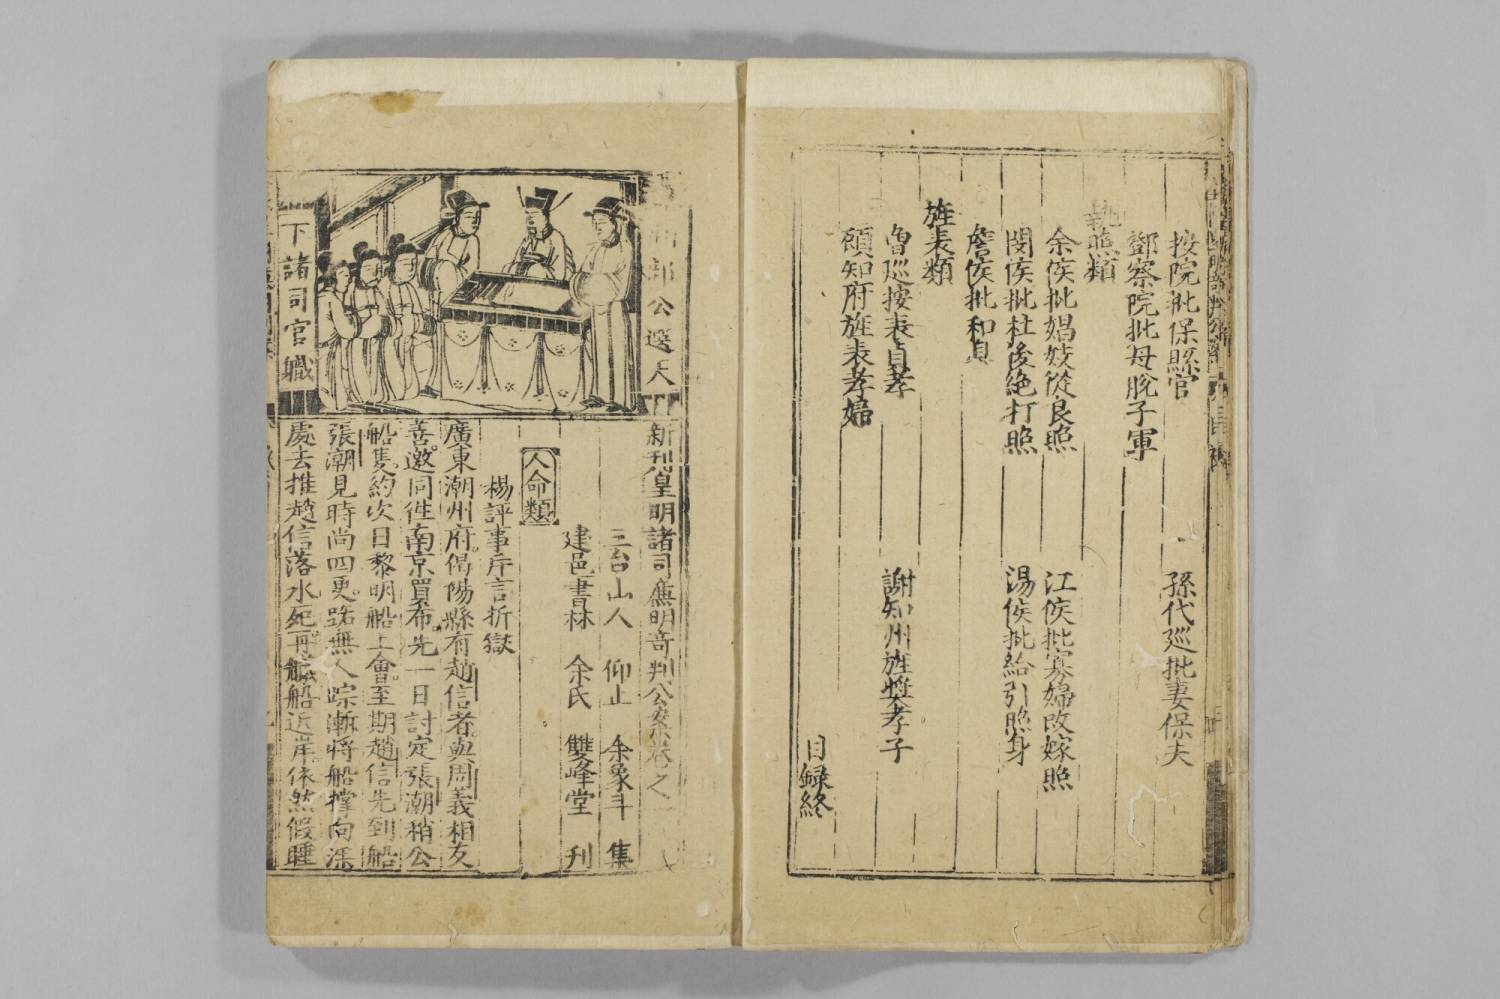 按院批保縣官
孫代巡批妻保夫
鄧察院批母脫子軍
執照類
余侯批娼妓從良照
江侯批寡婦改嫁照
閔侯批杜後絕打照
湯侯批給引照身
詹侯批和貞
旌表類
曾巡按表貞孝
謝知州旌奬孝子
顧知府旌表孝婦
目録終
部公選天
下諸司官職
新刊皇明諸司廉明竒判公案卷之一
三台山人 仰止 余象斗 集
建邑書林 余氏 雙峰堂 刊
人命類
楊評事斥言折獄
廣東潮州府偈陽縣有趙信者與周義相友
善邀同徃南京買布先一日討定張潮稍公
船隻約次日黎明船上會至期趙信先到船
張潮見時尚四更路無人踪漸將船撑向深
處去推趙信落水死再艤船近岸依然假睡